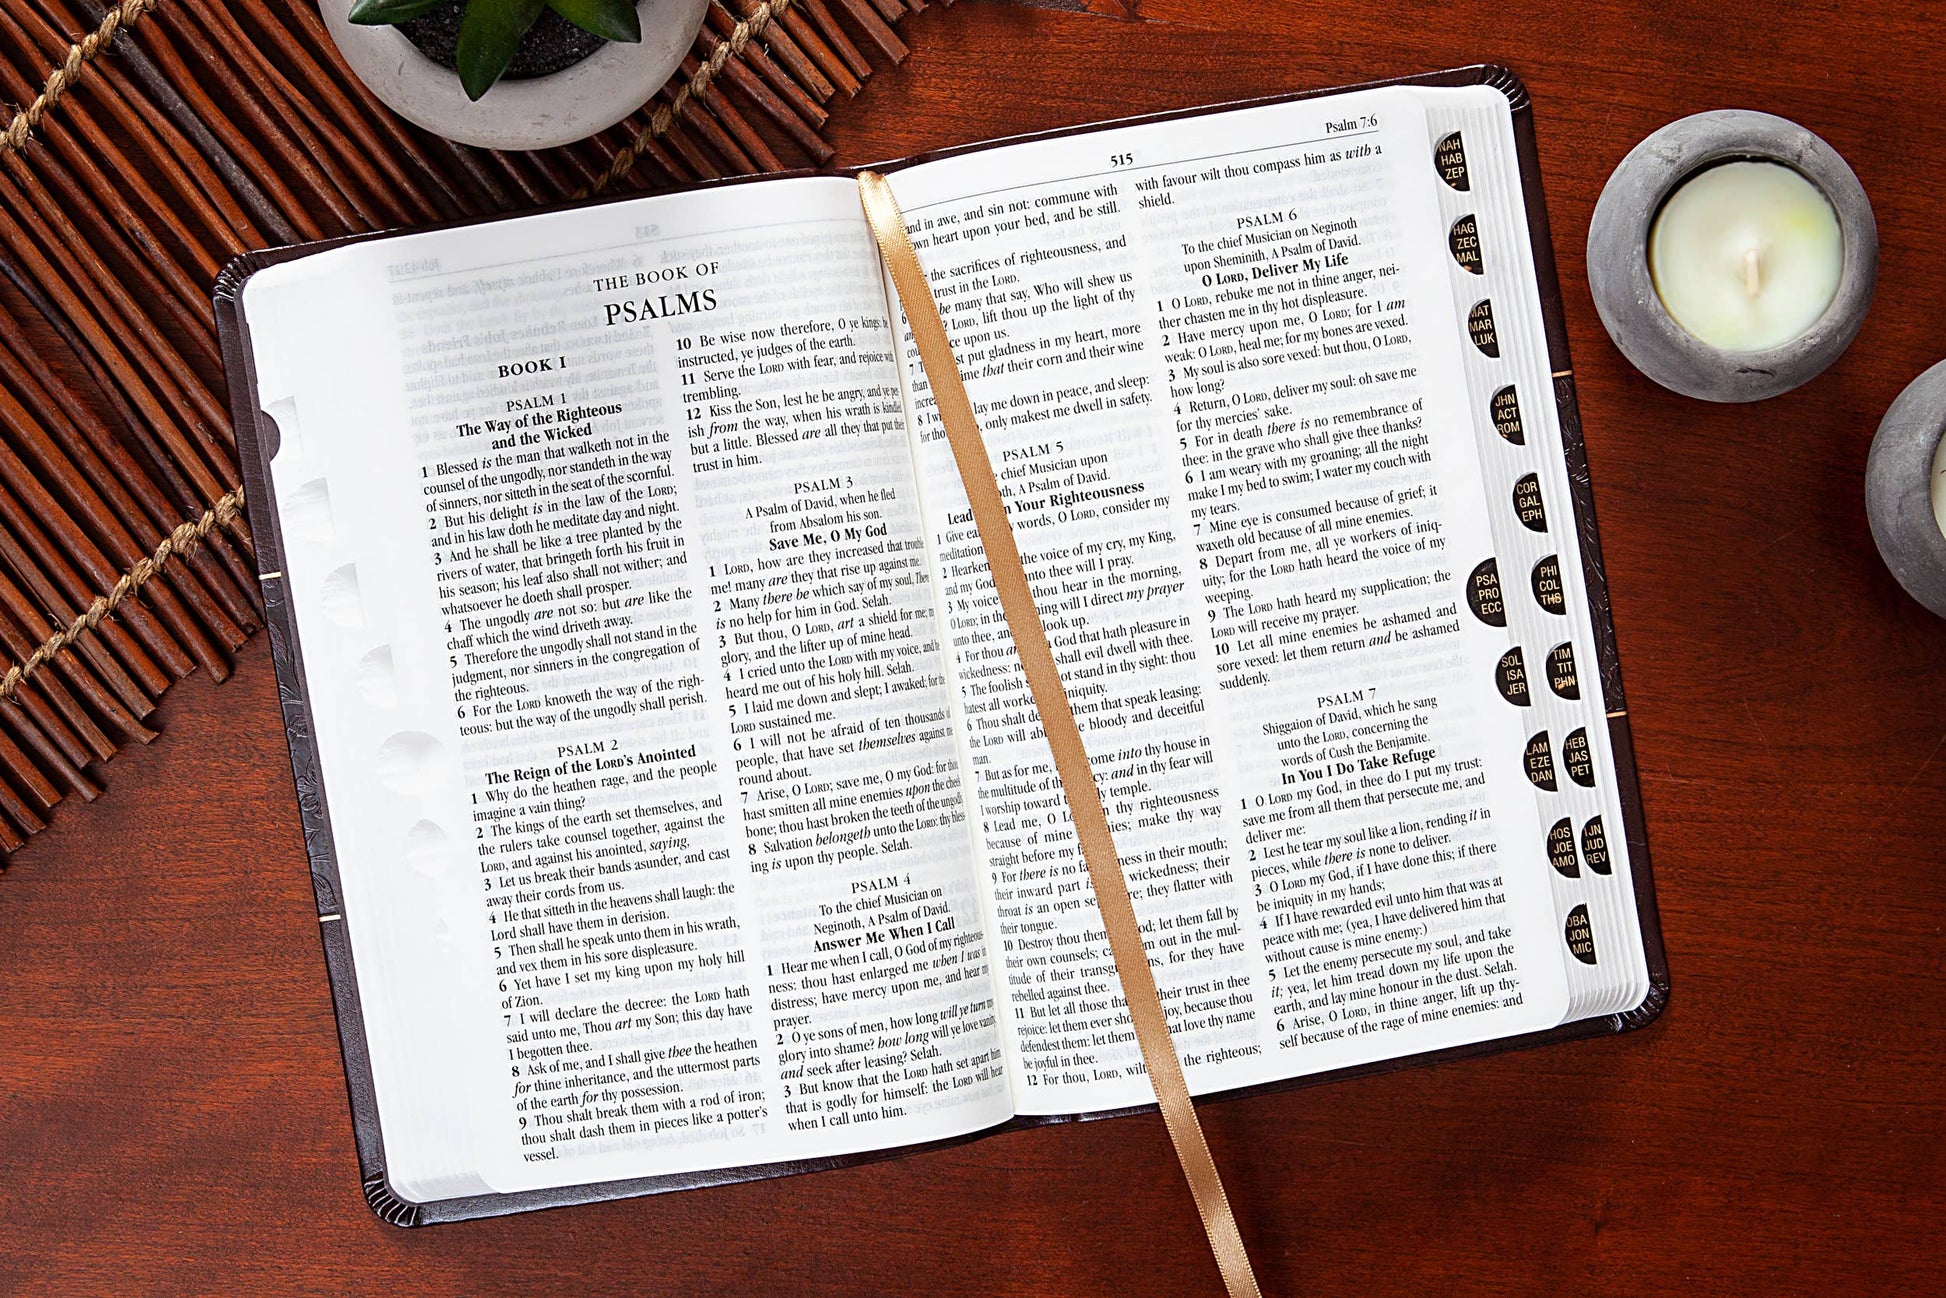 THE BOOK OF
PSALMS
BOOK I
PSALM 1
The Way of the Righteous
and the Wicked
1 Blessed is the man that walketh not in the
counsel of the ungodly, nor standeth in the way
of sinners, nor sitteth in the seat of the scornful.
2 But his delight is in the law of the LORD;
and in his law doth he meditate day and night.
3 And he shall be like a tree planted by the
rivers of water, that bringeth forth his fruit in
his season; his leaf also shall not wither; and
whatsoever he doeth shall prosper.
4 The ungodly are not so: but are like the
chaff which the wind driveth away.
5 Therefore the ungodly shall not stand in the
judgment, nor sinners in the congregation of
the righteous.
6 For the LORD knoweth the way of the righ-
teous: but the way of the ungodly shall perish.
PSALM 2
The Reign of the LORD's Anointed
1 Why do the heathen rage, and the people
imagine a vain thing?
2 The kings of the earth set themselves, and
the rulers take counsel together, against the
LORD, and against his anointed, saying,
3 Let us break their bands asunder, and cast
away their cords from us.
4 He that sitteth in the heavens shall laugh: the
Lord shall have them in derision.
5 Then shall he speak unto them in his wrath,
and vex them in his sore displeasure.
6 Yet have I set my king upon my holy hill
of Zion.
7 I will declare the decree: the LORD hath
said unto me, Thou art my Son; this day have
I begotten thee.
8 Ask of me, and I shall give thee the heathen
for thine inheritance, and the uttermost parts
of the earth for thy possession.
9 Thou shalt break them with a rod of iron;
thou shalt dash them in pieces like a potter's
vessel.
10 Be wise now therefore, O ye kings: be
instructed, ye judges of the earth.
11 Serve the LORD with fear, and rejoice with
trembling.
12 Kiss the Son, lest he be angry, and ye per-
ish from the way, when his wrath is kindled
but a little. Blessed are all they that put their
trust in him.
PSALM 3
A Psalm of David, when he fled
from Absalom his son.
Save Me, O My God
1 LORD, how are they increased that trouble
me! many are they that rise up against me.
2 Many there be which say of my soul, There
is no help for him in God. Selah.
3 But thou, O LORD, art a shield for me; m
glory, and the lifter up of mine head.
4 I cried unto the LORD with my voice, and he
heard me out of his holy hill. Selah.
5 I laid me down and slept; I awaked; for the
LORD sustained me.
6 I will not be afraid of ten thousands of
people, that have set themselves against me
round about.
7 Arise, O LORD; save me, O my God: for thou
hast smitten all mine enemies upon the cheek
bone; thou hast broken the teeth of the ungodly.
8 Salvation belongeth unto the LORD: thy bless-
ing is upon thy people. Selah.
PSALM 4
To the chief Musician on
Neginoth, A Psalm of David.
Answer Me When I Call
1 Hear me when I call, O God of my righteous-
ness: thou hast enlarged me when I was in
distress; have mercy upon me, and hear my
prayer.
2 O ye sons of men, how long will ye turn my
glory into shame? how long will ye love vanity,
and seek after leasing? Selah.
3 But know that the LORD hath set apart him
that is godly for himself: the LORD will hear
when I call unto him.
515
Psalm 7:6
and in awe, and sin not: commune with
own heart upon your bed, and be still.
the sacrifices of righteousness, and
trust in the LORD.
be many that say, Who will shew us
? LORD, lift thou up the light of thy
ce upon us.
st put gladness in my heart, more
than ime that their corn and their wine
increa
8 I w lay me down in peace, and sleep:
for tho , only makest me dwell in safety.
PSALM 5
chief Musician upon
th, A Psalm of David.
Lead n Your Righteousness
1 Give ea words, O LORD, consider my
meditation
2 Hearken the voice of my cry, my King,
and my God nto thee will I pray.
3 My voice thou hear in the morning,
O LORD; in th ning will I direct my prayer
unto thee, an look up.
4 For thou a God that hath pleasure in
wickedness: n shall evil dwell with thee.
5 The foolish ot stand in thy sight: thou
hatest all work iniquity.
6 Thou shalt de them that speak leasing:
the LORD will ab e bloody and deceitful
man.
7 But as for me, ome into thy house in
the multitude of th cy: and in thy fear will
I worship toward y temple.
8 Lead me, O L n thy righteousness
because of mine ies; make thy way
straight before my f
9 For there is no fa ness in their mouth;
their inward part i wickedness; their
throat is an open se re; they flatter with
their tongue.
10 Destroy thou them od; let them fall by
their own counsels; ca m out in the mul-
titude of their transg ns, for they have
rebelled against thee.
11 But let all those tha their trust in thee
rejoice: let them ever sho joy, because thou
defendest them: let them hat love thy name
be joyful in thee.
12 For thou, LORD, wilt the righteous;
with favour wilt thou compass him as with a
shield.
PSALM 6
To the chief Musician on Neginoth
upon Sheminith, A Psalm of David.
O LORD, Deliver My Life
1 O LORD, rebuke me not in thine anger, nei-
ther chasten me in thy hot displeasure.
2 Have mercy upon me, O LORD; for I am
weak: O LORD, heal me; for my bones are vexed.
3 My soul is also sore vexed: but thou, O LORD,
how long?
4 Return, O LORD, deliver my soul: oh save me
for thy mercies' sake.
5 For in death there is no remembrance of
thee: in the grave who shall give thee thanks?
6 I am weary with my groaning; all the night
make I my bed to swim; I water my couch with
my tears.
7 Mine eye is consumed because of grief; it
waxeth old because of all mine enemies.
8 Depart from me, all ye workers of iniq-
uity; for the LORD hath heard the voice of my
weeping.
9 The LORD hath heard my supplication; the
LORD will receive my prayer.
10 Let all mine enemies be ashamed and
sore vexed: let them return and be ashamed
suddenly.
PSALM 7
Shiggaion of David, which he sang
unto the LORD, concerning the
words of Cush the Benjamite.
In You I Do Take Refuge
1 O LORD my God, in thee do I put my trust:
save me from all them that persecute me, and
deliver me:
2 Lest he tear my soul like a lion, rending it in
pieces, while there is none to deliver.
3 O LORD my God, if I have done this; if there
be iniquity in my hands;
4 If I have rewarded evil unto him that was at
peace with me; (yea, I have delivered him that
without cause is mine enemy:)
5 Let the enemy persecute my soul, and take
it; yea, let him tread down my life upon the
earth, and lay mine honour in the dust. Selah.
6 Arise, O LORD, in thine anger, lift up thy-
self because of the rage of mine enemies: and
NAH
HAB
ZEP
HAG
ZEC
MAL
MAT
MAR
LUK
JHN
ACT
ROM
COR
GAL
EPH
PSA
PRO
ECC
PHI
COL
THS
SOL
ISA
JER
TIM
TIT
PHN
LAM
EZE
DAN
HEB
JAS
PET
HOS
JOE
AMO
IJN
JUD
REV
OBA
JON
MIC